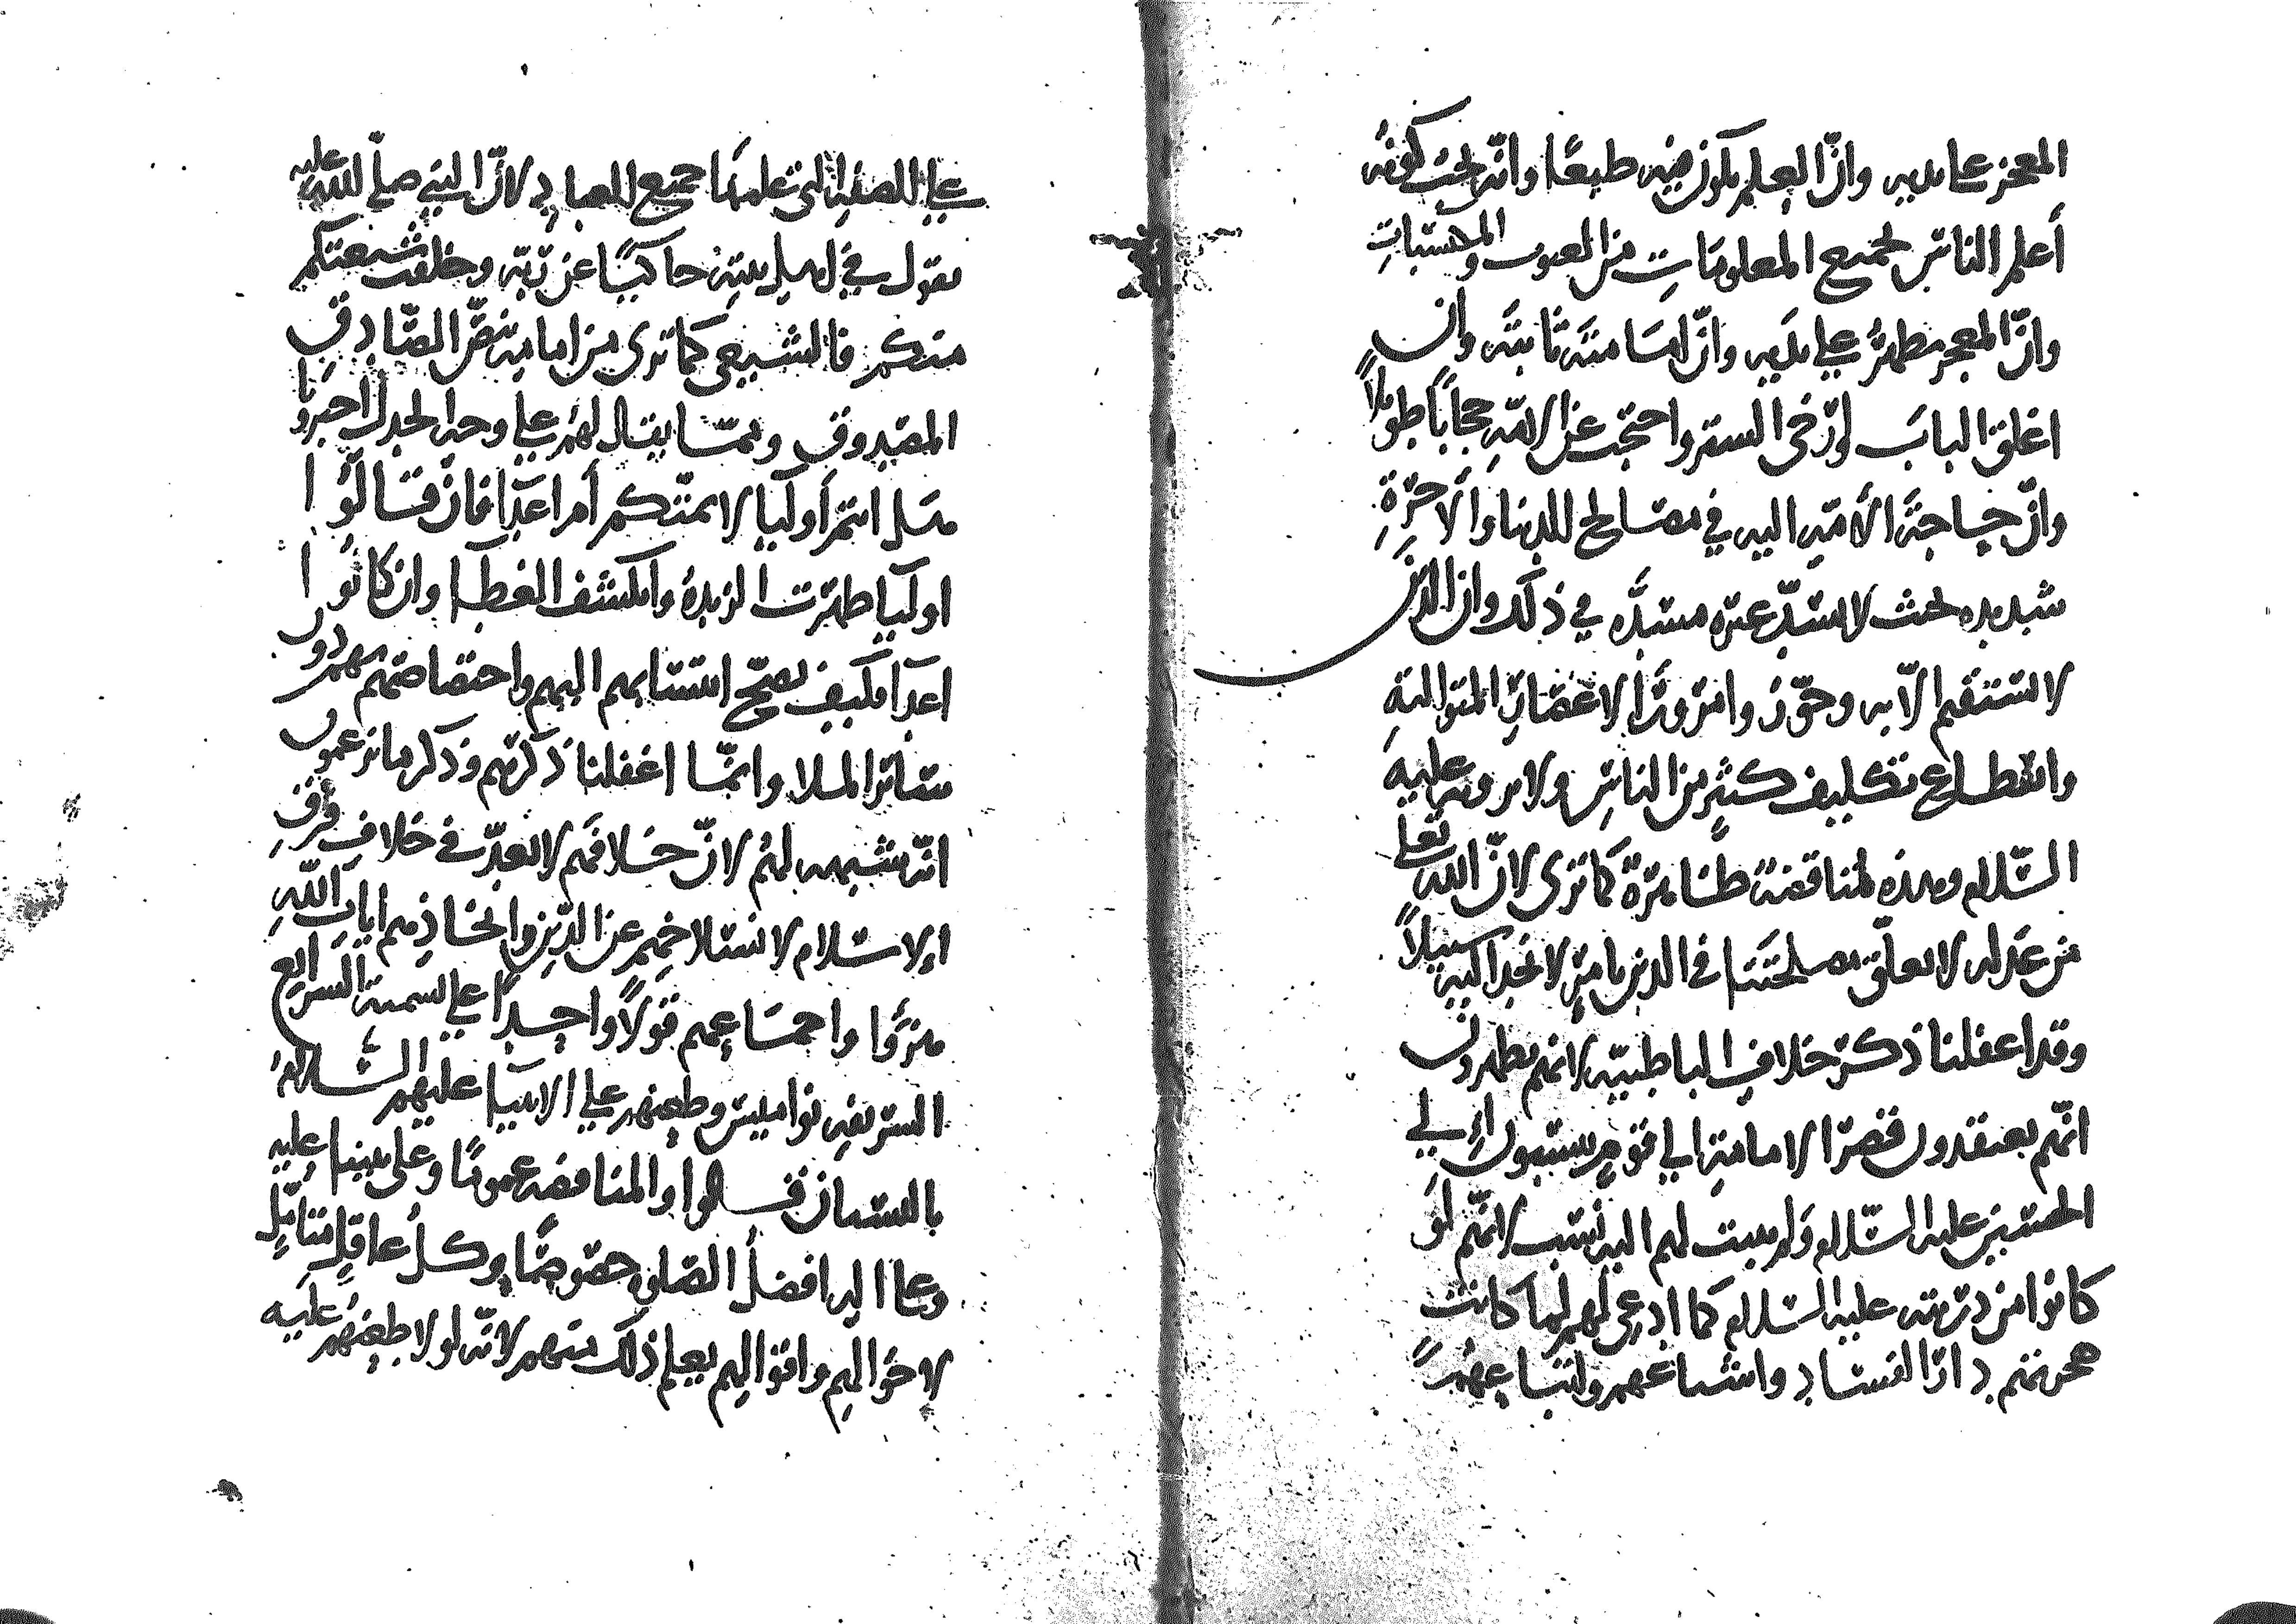 المعجز على يديه وانّ العلم يكون فيه طبعًا وانّه يجب كونه
أعلم الناس بجميع المعلومات من الغيوب والمكتسبات
وانّ المعجز مظهرٌ على يديه وانّ امامته ثابته وان
اغلق الباب وارخى الستر واحتجب عن الامّه حجابًا طويلاً
وانّ حاجة الأمّه اليه في مصالح الدنيا والآخرة
شديده بحيث لا يسدّ غيره مسدّه في ذلك وان الدين
لا يستقيم الّا به وجوّزوا مرور الاعصار المتوالية
وانقطاع تكليف كثير من الناس ولا يرونه عليه
السّلام وهذه المناقضة ظاهرة كما ترى لانّ الله تعلى
من عدله لا يعلّق مصلحتنا في الدين بامرٍ لا نجد اليه سبيلاً
وقد اغفلنا ذكر خلاف الباطنيّه لانهم يظهرون
انّهم يعتقدون قصر الامامة الى قوم ينتسبون إلى
الحسين عليه السّلام ولم يثبت لهم اليه نسب لانّهم لو
كانوا من ذريته عليه السلام كما ادعى لهم لما كانت
هجرتهم دار الفساد واشياعهم واتباعهم
على الصفة التي علمها جميع العباد لانّ النبي صلى الله عليه
يقول في اهل بيته حاكيًا عن ربّه وخلقت شيعتكم
منكم فالشيعي كما ترى من امامه بنصّ الصّادق
المصدوق وممّا يقال لهم على وجه الجدل اخبرونا
هل انتم أوليا لائمّتكم أم اعدآ فان قالوا
اوليا ظهرت الزبدة وانكشف الغطا وان كانوا
اعدآ فكيف يصح انتسابهم اليهم واختصاصهم بهم دون
سائر الملا وانّما اغفلنا ذكرهم وذكر ما يزعمون
انّه شبهه لهم لانّ خلافهم لا يعدّ في خلاف فرق
الإسلام لانسلاخهم عن الدّين واتخاذهم ايات الله
هزوًا واجماعهم قولاً واحدًا على تسمية الشرايع
الشريفه نواميس وطعنهم على الانبيا عليهم السلام
والمناقضه عمومًا وعلى نبينا عليه
وعلى اله افضل الصلوة خصوصًا وكل عاقل متأمّل
لاحوالهم واقوالهم يعلم ذلك منهم لانّه لولا طعنهم عليه